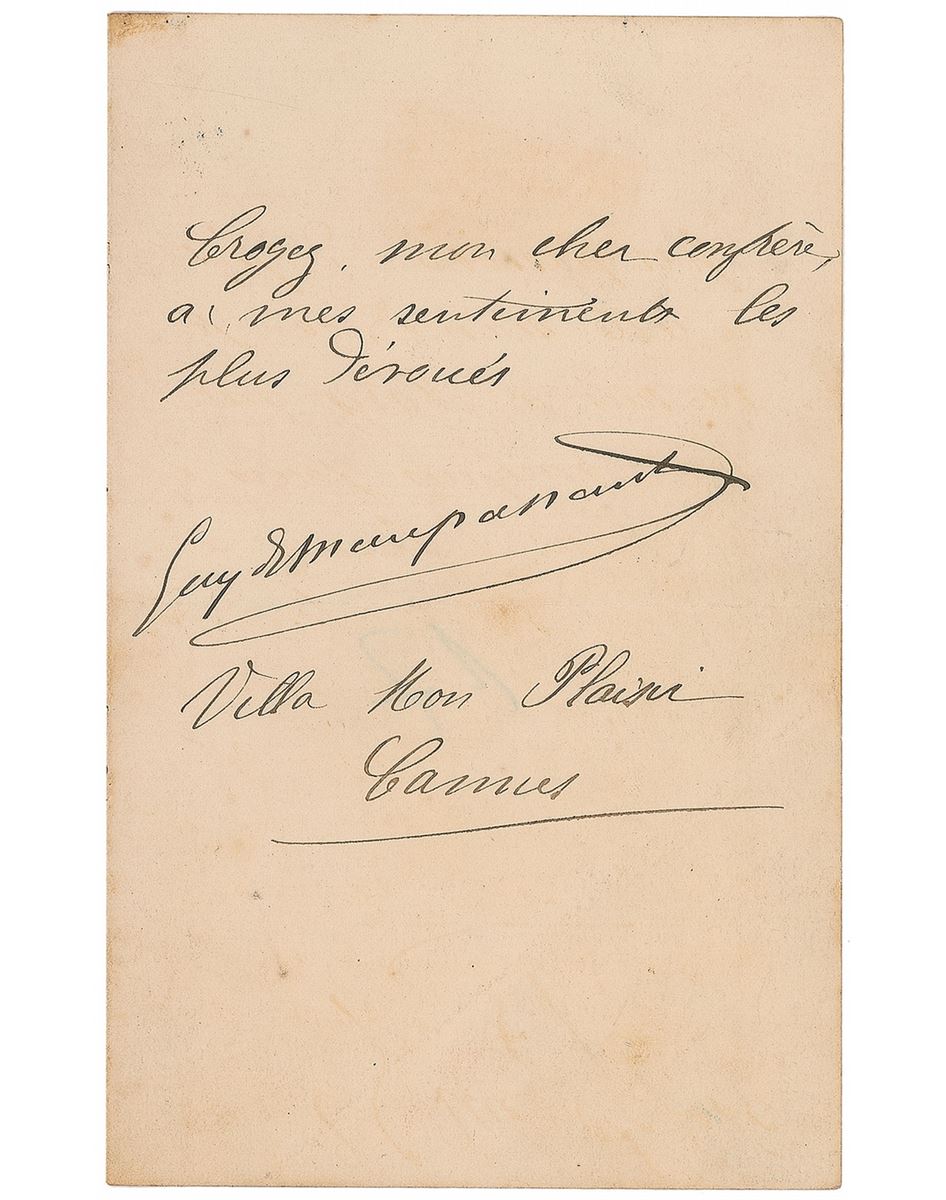 Croyez, mon cher confrère,
à mes sentiments les
plus dévoués
Guy de Maupassant
Villa Mon Plaisir
Cannes